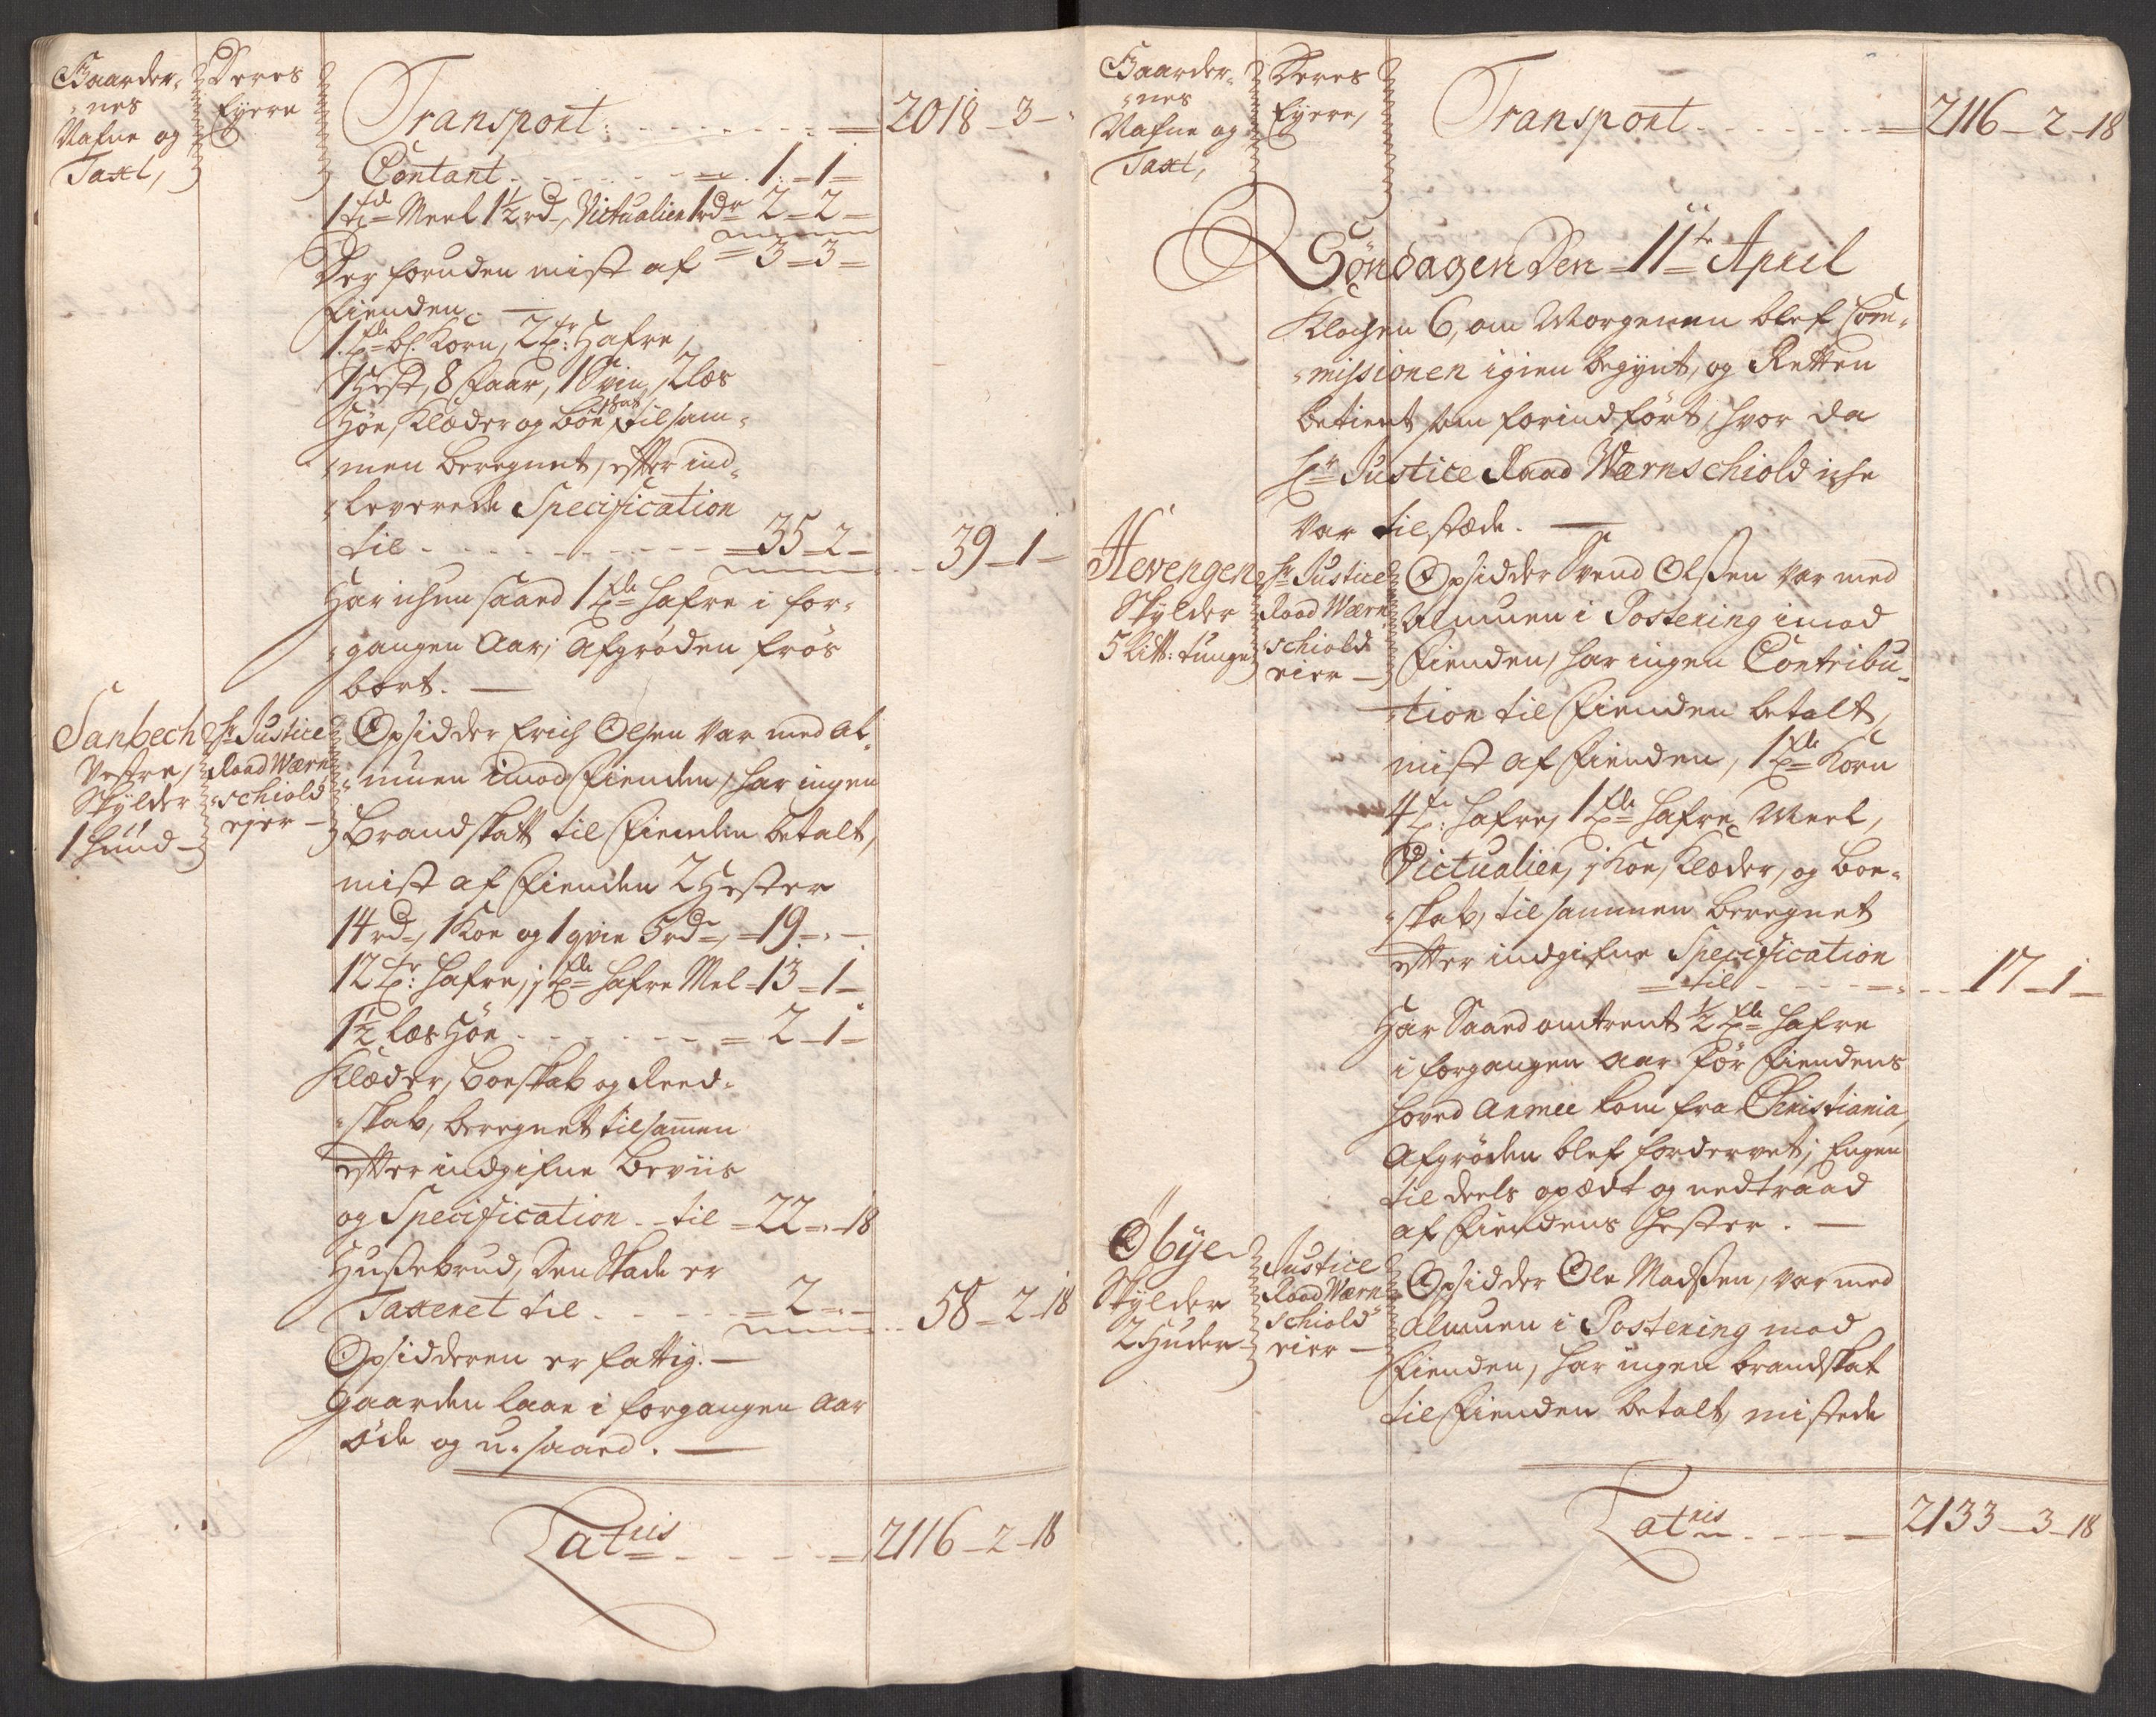 Gaarder-
nes
Nafne og
Taxt,
Deres
Eyere
Transport: 2018-3-
Contant 1-1-
1 td Meel 1½ rd, Victualier 1 rdr 2-2-
3-3-
Der foruden mist af
Fienden. —
1 bl. Korn, 2 Hafre,
1 Hest, 8 Faar, 1 Svin, 2 læs
Høe, Klæder og boeskab tilsam-
men beregnet, efter ind-
leverede Specification
til 35-2- 39-1-
Har ichun saaed 1 hafre i for-
gangen Aar; Afgrøden frøs
bort. —
Sanbech
Vestre,
Skylder
1 hund
Hr Justice
Raad Wærn
schiold
ejer
Opsidder Erich Olsen var med Al-
muen imod Fienden, har ingen
Brandskatt til Fienden betalt,
mist af Fienden 2 Hester
14 rd, 1 Koe og 1 qvie 5 rdr, 19-
12 hafre, j hafre Mel 13-1-
1½ læs Høe 2-1-
Klæder, boeskab og Reed-
skab, beregnet tilsamen
efter indgifne beviis
og Specification til 22-"-18
Hussebrud, den skade er
Taxeret til 2- 58-2-18
Opsidderen er fattig. —
Gaarden laae i forgangen Aar
øde og u-saaed. —
Latris 2116-2-18
Gaarder-
nes
Nafne og
Taxt,
Deres
Eyere,
Transport 2116-2-18
Søndagen Den 11te April
Klochen 6, om Morgenen blef Com-
missionen igien begynt, og Retten
betient som forindført, hvor da
Hr Justice Raad Wærnschiold iche
var tilstæde. —
Hevengen
Skylder
5 Litt: tunge
Hr Justice
Raad Wærn
schiold
eier —
Opsidder Svend Olssen var med
Almuen i Postering imod
Fienden, har ingen Contribu-
tion til Fienden betalt,
mist af Fienden, 1 Korn
4 hafre, 1 hafre Meel,
Victualier, j Koe, Klæder, og boe-
skab, tilsammen beregnet
efter indgifne Specification
til 17-1-
Har Saaed omtrent ½ hafre
i forgangen Aar før Fiendens
hoved Armee kom fra Christiania,
Afgrøden blef fordervet; Engen
til deels opædt og nedtraad
af Fiendens Hester. —
Obye
Skylder
2 Huder
Justice
Raad Wærn
schiold
eier —
Opsidder Ole Madssen, var med
Almuen i Postering mod
Fienden, har ingen brandskat
til Fienden betalt, mistede
Latris 2133-3-18